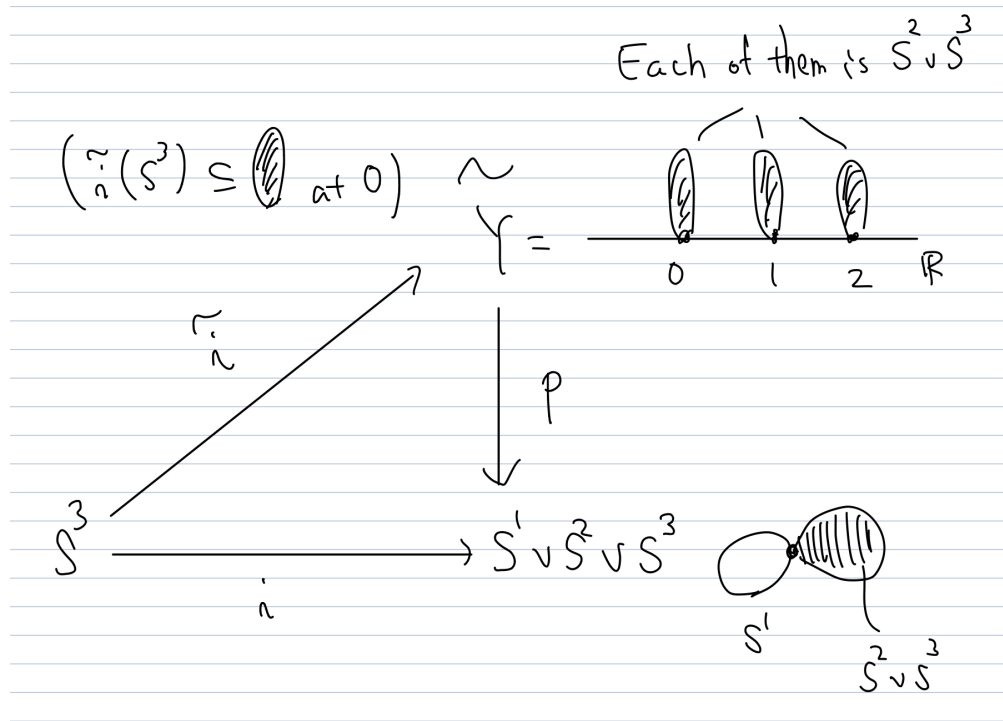 Each of them is S² ∨ S³
(ĩ(S³) ⊆ at 0)
Ỹ =
0 1 2 ℝ
ĩ
p
S³
S¹ ∨ S² ∨ S³
i
S¹
S² ∨ S³